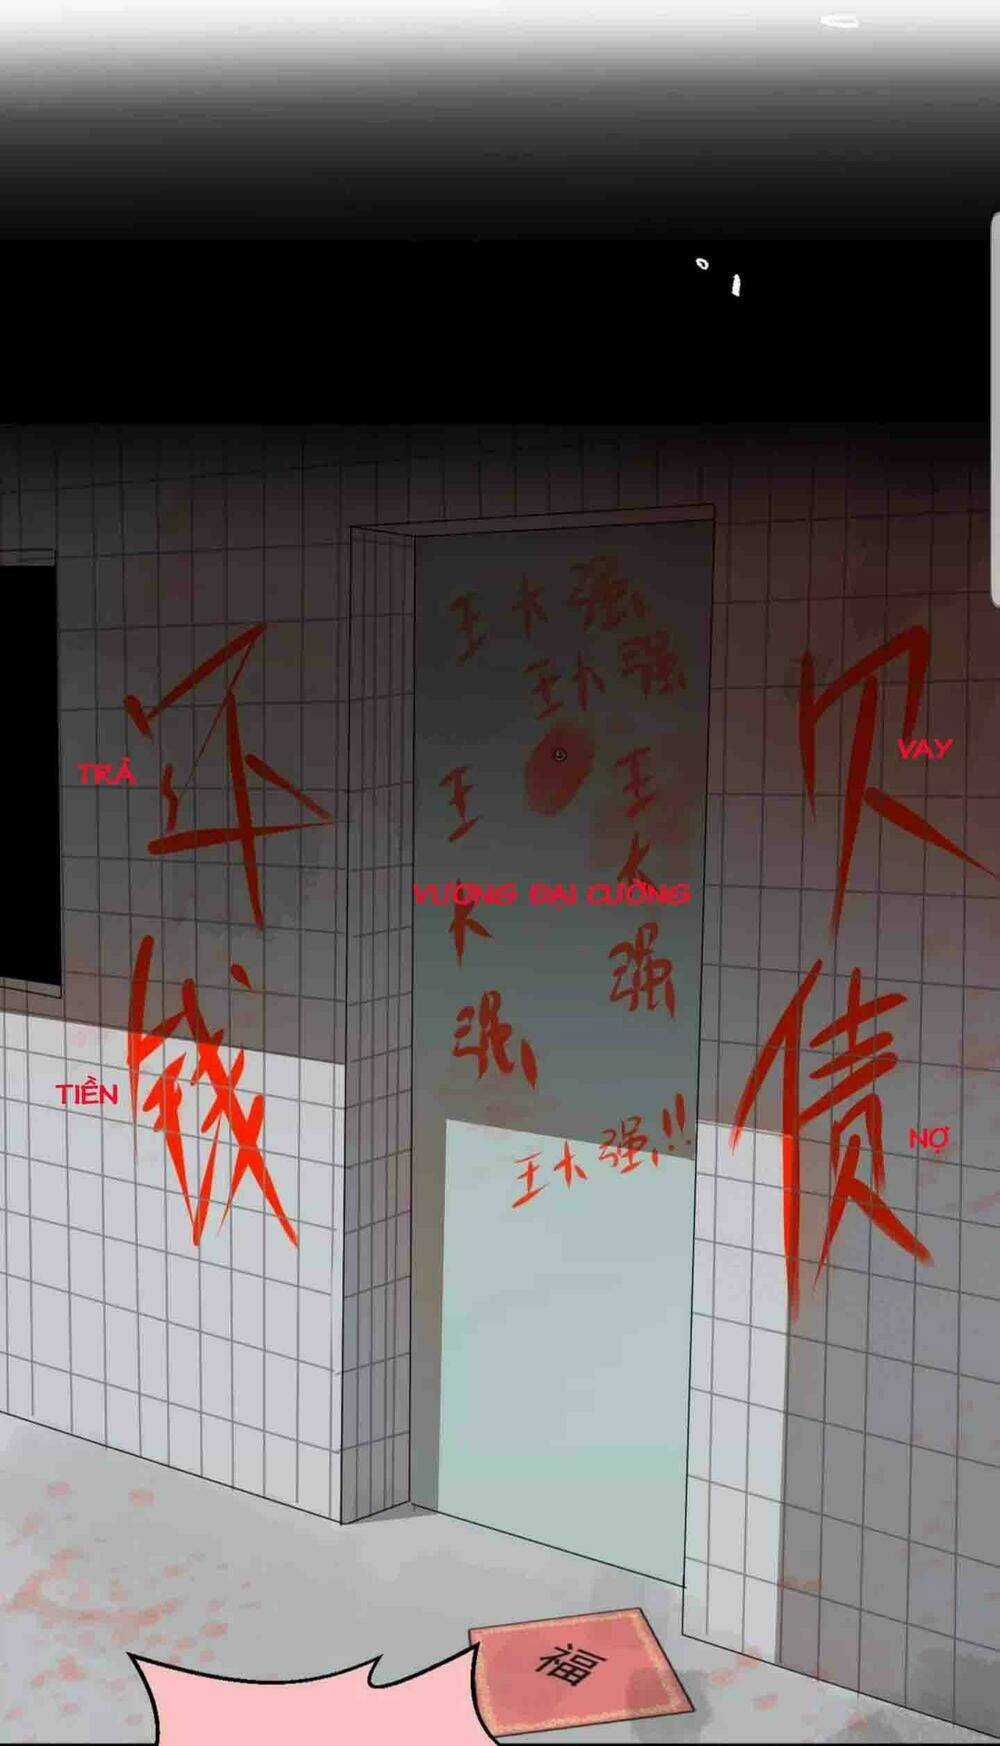 王大强
王大强
王大强
王大强
王大强!!
欠债
钱
VAY
NỢ
TRẢ
TIỀN
VƯƠNG ĐẠI CƯỜNG
福